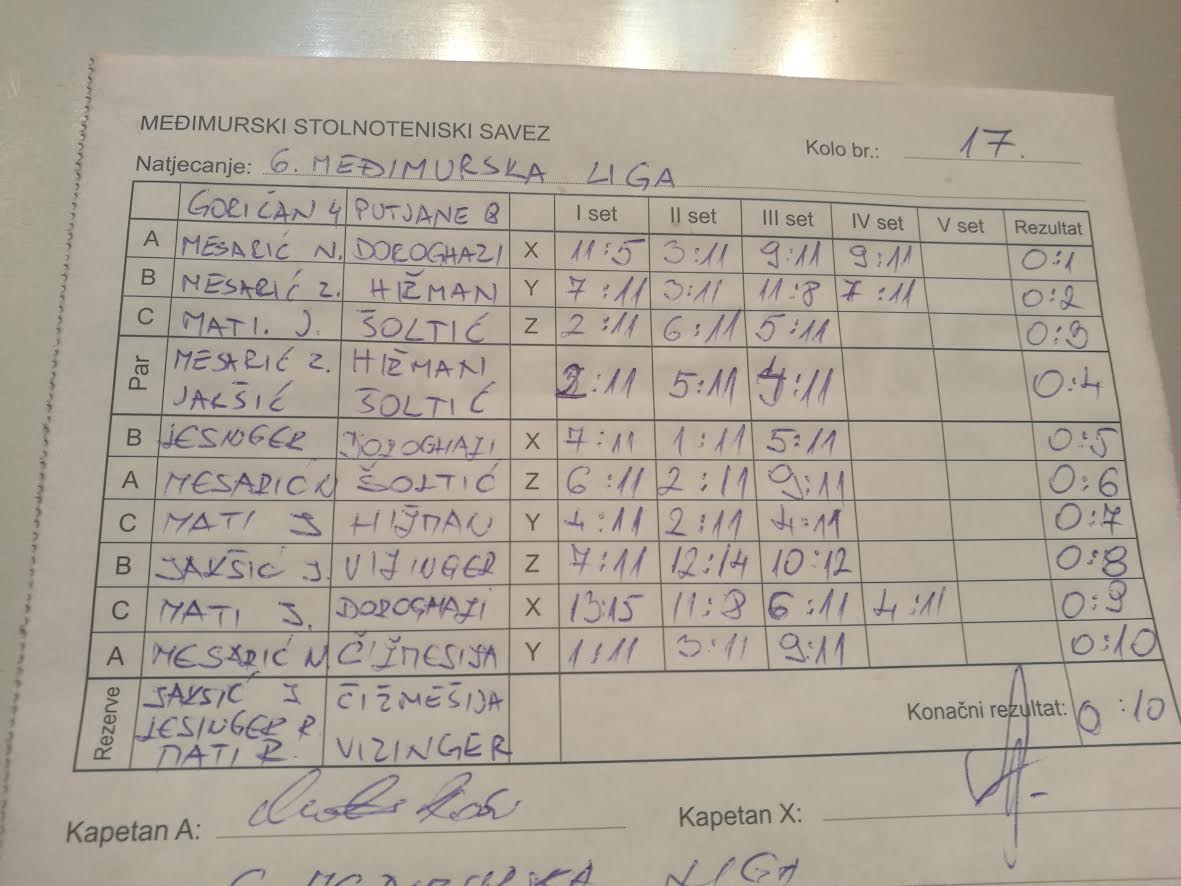 MEĐIMURSKI STOLNOTENISKI SAVEZ
Kolo br.: 17.
Natjecanje: 6. MEĐIMURSKA LIGA
GORIČAN 4 PUTJANE B I set II set III set IV set V set Rezultat
A MESARIĆ N. DOROGHAZI X 11:5 3:11 9:11 9:11 0:1
B MESARIĆ Z. HIŽMAN Y 7:11 3:11 11:8 7:11 0:2
C MATI. J. ŠOLTIĆ Z 2:11 6:11 5:11 0:3
Par MESARIĆ Z. HIŽMAN
JAKŠIĆ ŠOLTIĆ :11 5:11 :11 0:4
B JESINGER DOROGHAZI X 7:11 1:11 5:11 0:5
A MESARIĆ N ŠOLTIĆ Z 6:11 2:11 9:11 0:6
C MATI J HIŽMAN Y 4:11 2:11 4:11 0:7
B JAKŠIĆ J. VIZINGER Z 7:11 12:14 10:12 0:8
C MATI J. DOROGHAZI X 13:15 11:8 6:11 4:11 0:9
A MESARIĆ N ČIŽMEŠIJA Y 1:11 3:11 9:11 0:10
Rezerve JAKSIĆ J ČIŽMEŠIJA
JESINGER R.
MATI R. VIZINGER
Konačni rezultat: 0:10
Kapetan A:
Kapetan X:
LIGA